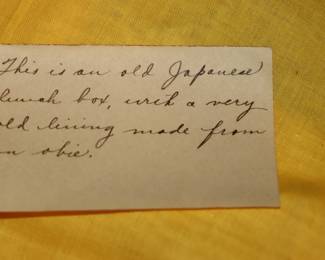 This is an old Japanese
lunch box, with a very
old lining made from
an obie.